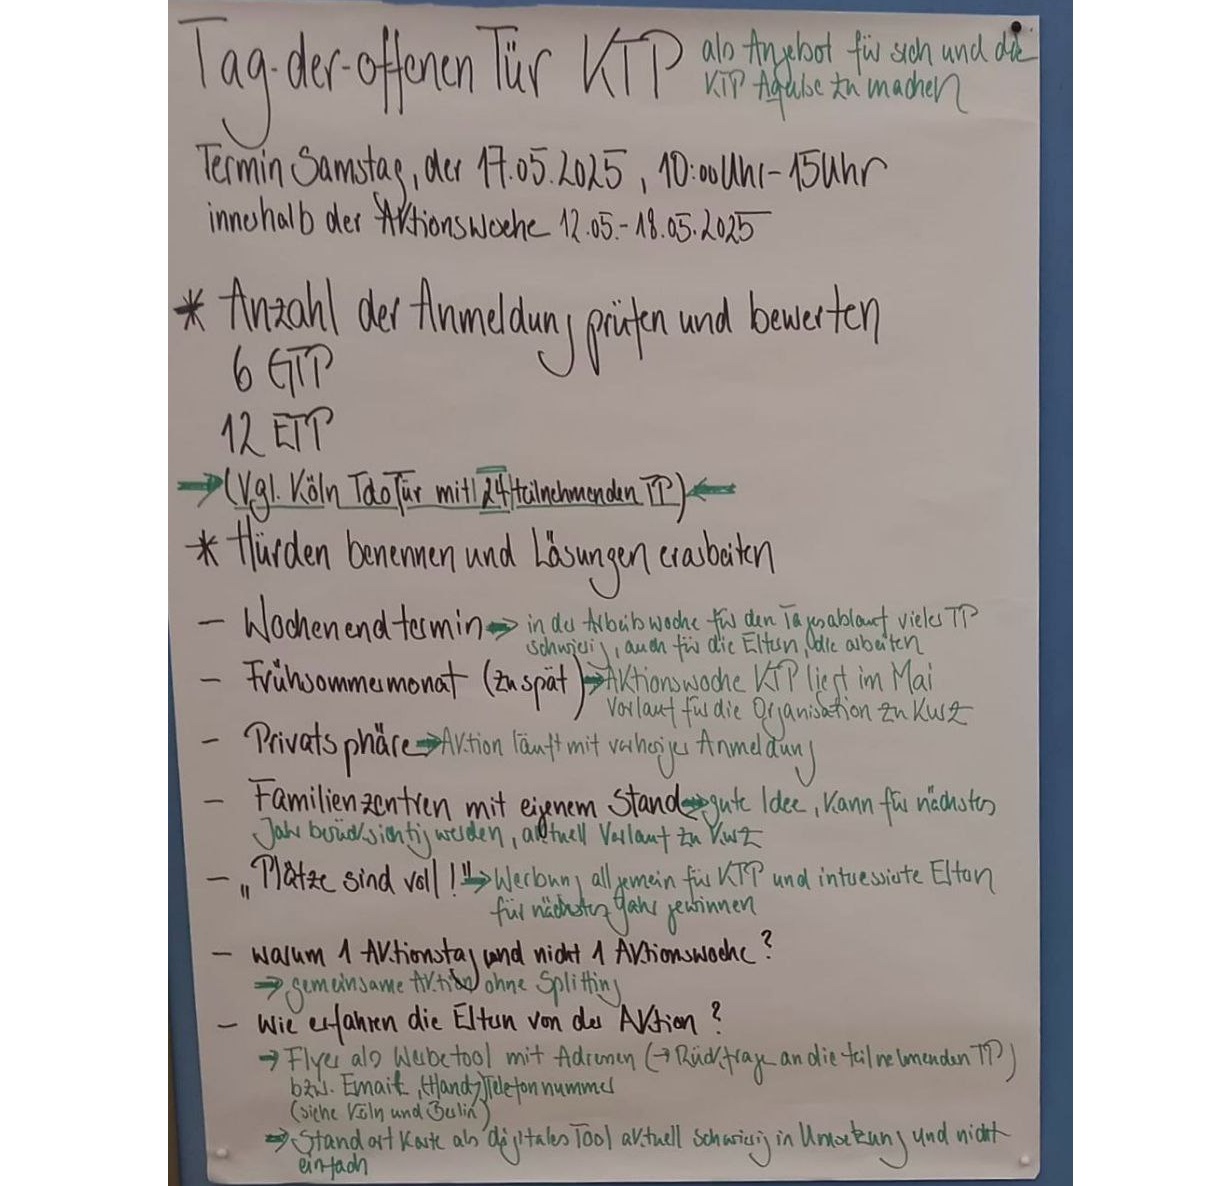 Tag-der-offenen Tür KTP als Angebot für sich und die
KTP Agabe zu machen
Termin Samstag, der 17.05.2025, 10:00 Uhr - 15 Uhr
innerhalb der Aktionswoche 12.05.- 18.05.2025
* Anzahl der Anmeldung prüfen und bewerten
6 GTP
12 ETP
→ (Vgl. Köln TdoTür mit 24 teilnehmenden TP) ←
* Hürden benennen und Lösungen erarbeiten
- Wochenendtermin → in der Arbeitswoche für den Tagesablauf vieler TP
schwierig, auch für die Eltern, die arbeiten
- Frühsommermonat (zu spät) → Aktionswoche KTP liegt im Mai
Vorlauf für die Organisation zu kurz
- Privatsphäre → Aktion läuft mit vorheriger Anmeldung
- Familienzentren mit eigenem Stand → gute Idee, kann für nächstes
Jahr berücksichtig werden, aktuell Vorlauf zu kurz
- „Plätze sind voll!" → Werbung allgemein für KTP und interessierte Eltern
für nächstes Jahr gewinnen
- Warum 1 Aktionstag und nicht 1 Aktionswoche?
→ gemeinsame Aktion ohne Splitting
- Wie erfahren die Eltern von der Aktion?
→ Flyer als Werbetool mit Adressen (→ Rückfrage an die teilnehmenden TP)
bzw. Email, (Handy) Telefonnummer
(siehe Köln und Berlin)
→ Standort Karte als digitales Tool aktuell schwierig in Umsetzung und nicht
einfach